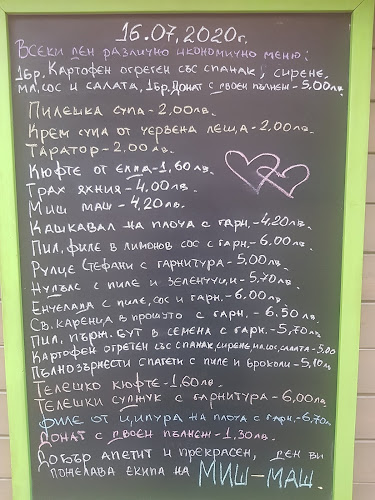 16.07,2020г.
Всеки ден различно икономично меню:
1бр. Картофен огретен със спанак, сирене,
мл. сос и салата, 1бр. Донат с двоен пълнеж - 5,00лв.
Пилешка супа - 2,00лв.
Крем супа от червена леща - 2,00лв.
Таратор - 2,00лв.
Кюфте от елда - 1,60лв.
Грах яхния - 4,00лв.
Миш маш - 4,20лв.
Кашкавал на плоча с гарн. - 4,20лв.
Пил. филе в лимонов сос с гарн. - 6,00лв.
Рулце Стефани с гарнитура - 5,00лв.
Нудълс с пиле и зеленчуци - 5,70лв.
Енчелада с пиле, сос и гарн. - 6,00лв.
Св. каренца в прошуто с гарн. - 6.50лв.
Пил. пърж. бут в семена с гарн. - 5,70лв.
Картофен огретен със спанак, сирене, мл. сос, салата - 5,00
Пълнозърнести спагети с пиле и броколи - 5,10лв.
Телешко кюфте - 1,60лв.
Телешки суджук с гарнитура - 6,00лв
Филе от ципура на плоча с гарн. - 6,70лв
Донат с двоен пълнеж - 1,30лв.
Добър апетит и прекрасен ден ви
пожелава екипа на МИШ-МАШ.